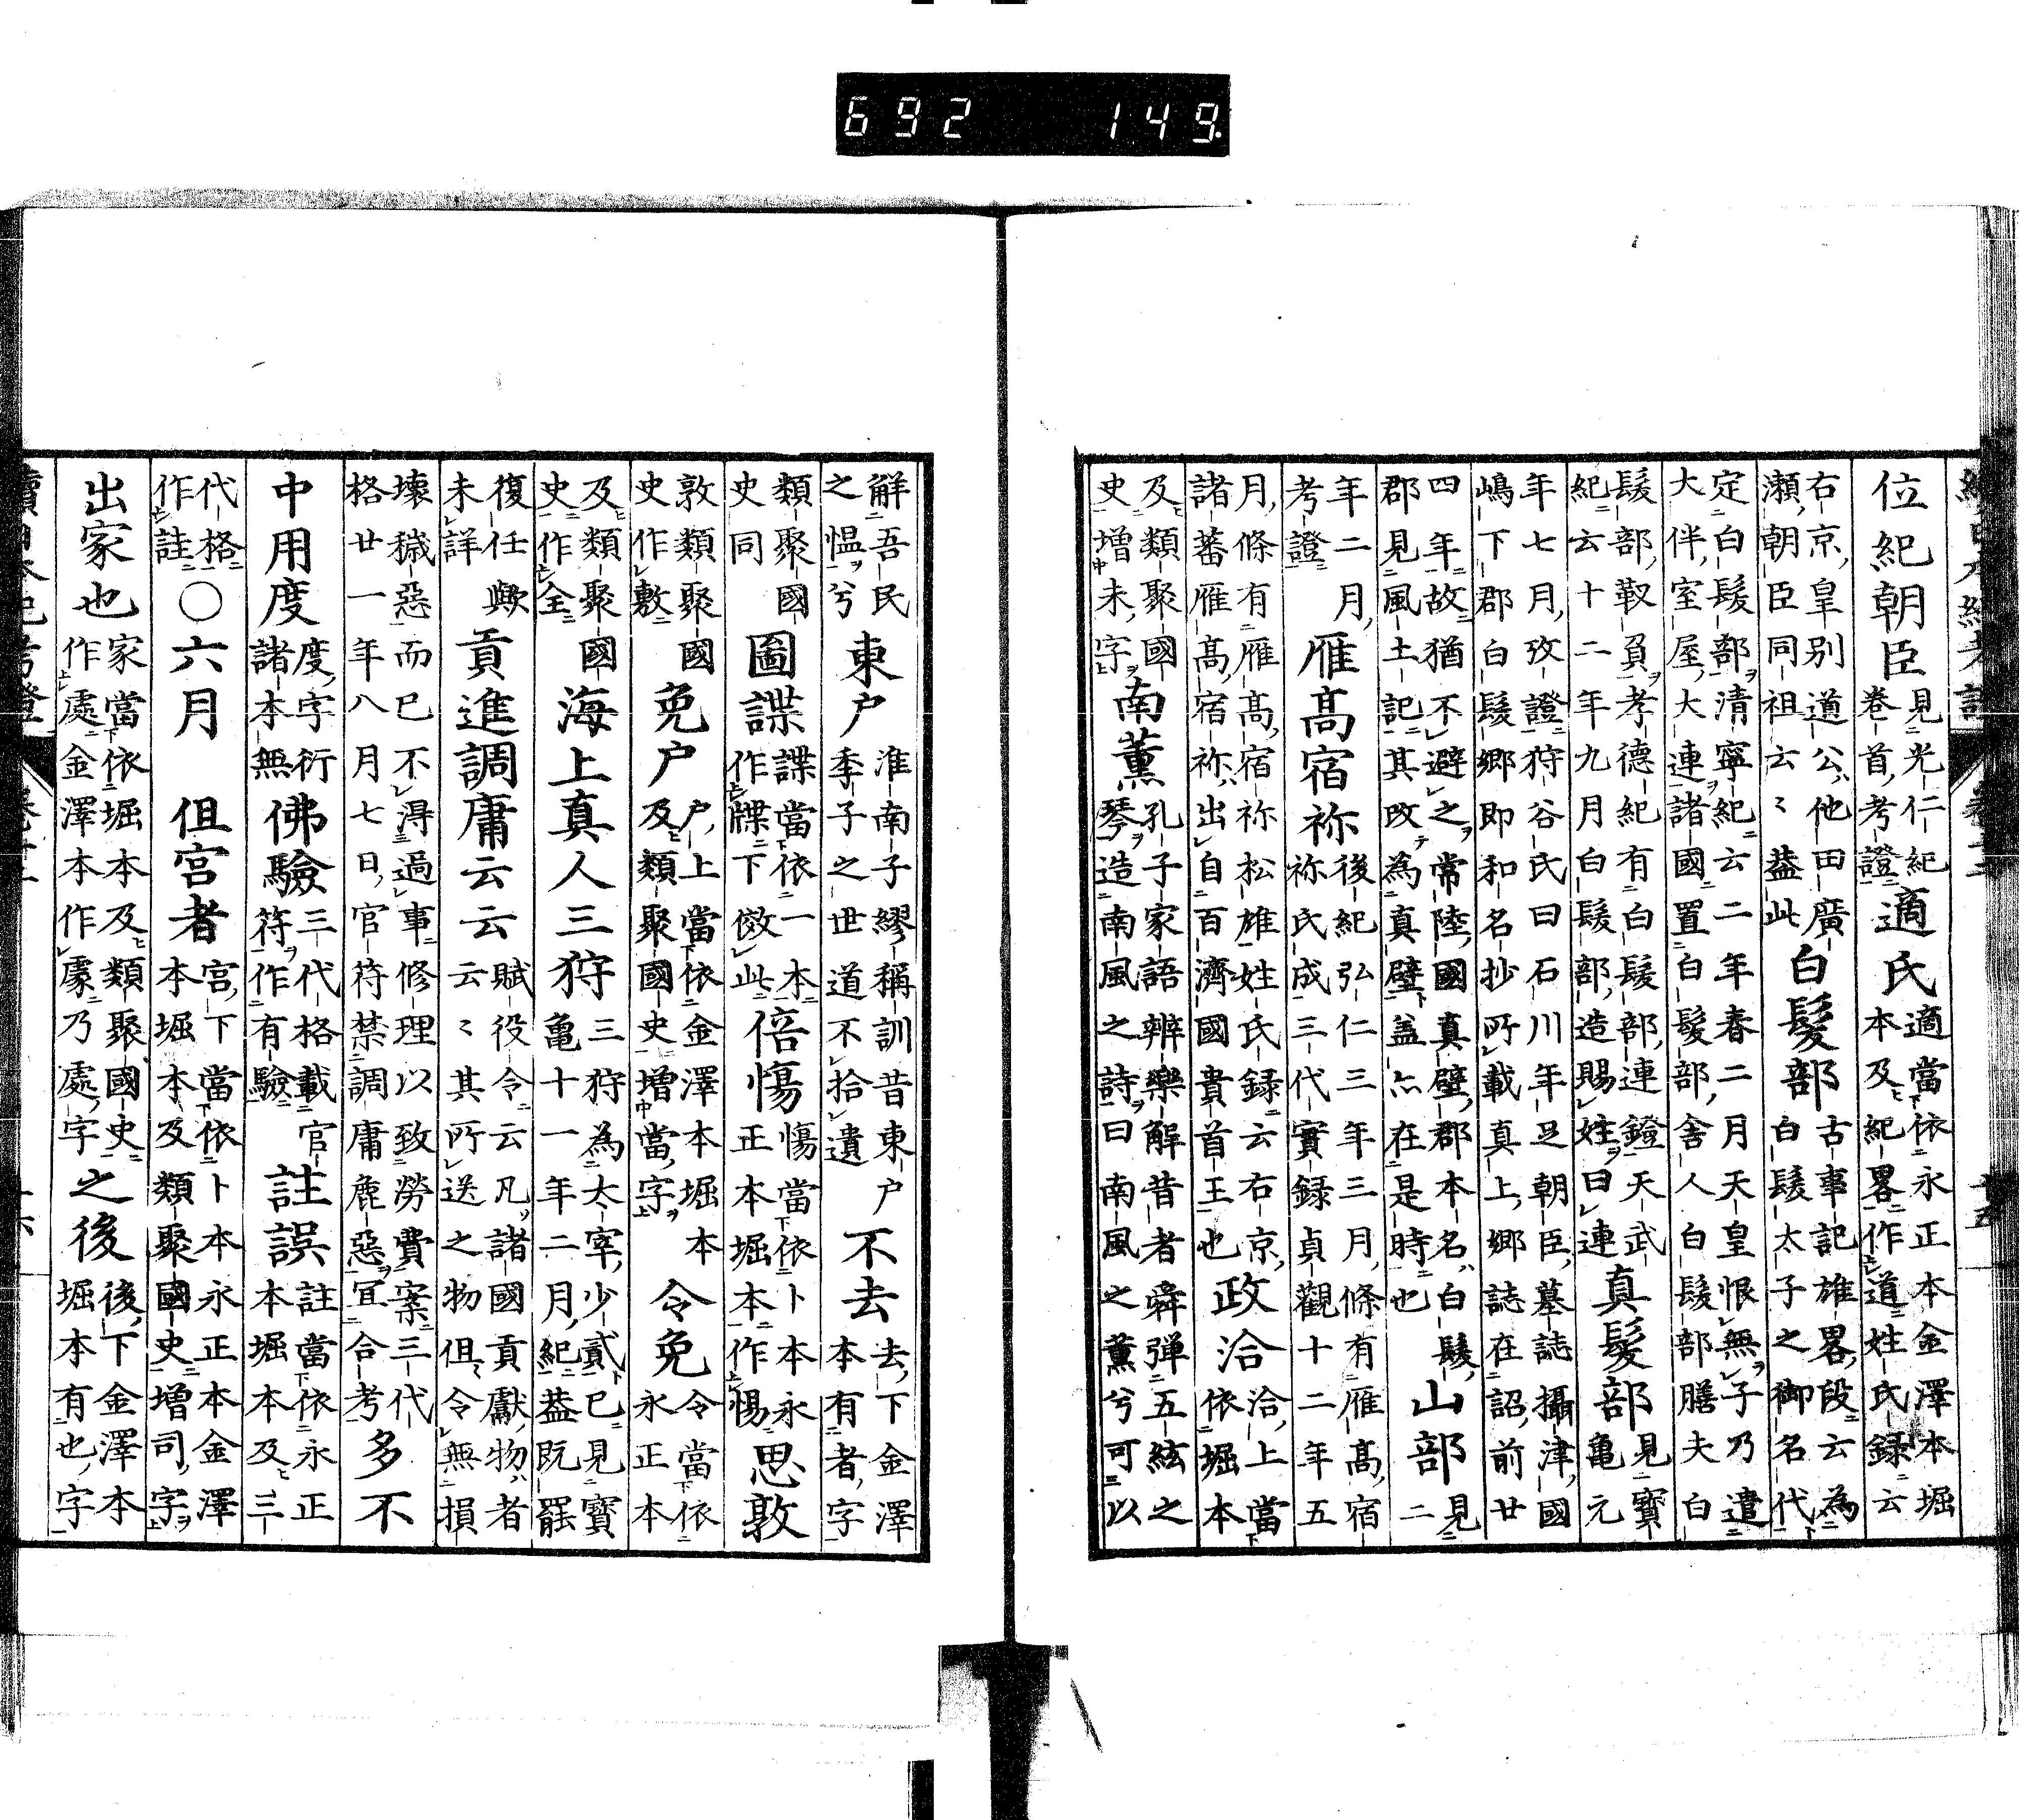 692 149.
位紀朝臣見光仁紀卷首考證適氏適當依永正本金澤本堀本及紀畧作道姓氏録云
右京皇別道公他田廣瀬朝臣同祖云〻葢此白髮部古事記雄畧段云為白髮太子之御名代
定白髮部清寧紀云二年春二月天皇恨無子乃遣大伴室屋大連諸國置白髮部舎人白髮部膳夫白
髮部靫負孝德紀有白髮部連鐙天武紀云十二年九月白髮部造賜姓曰連真髮部見寶亀元
年七月攷證狩谷氏曰石川年足朝臣墓誌攝津國嶋下郡白髮郷即和名抄所載真上郷誌在詔前廿
四年故猶不避之常陸國真壁郡本名白髮郡見風土記其改為真壁葢亦在是時也山部見二
年二月考證雁高宿祢後紀弘仁三年三月條有雁高宿祢氏成三代實録貞觀十二年五
月條有雁高宿祢松雄姓氏録云右京諸蕃雁高宿祢出自百濟國貴首王也政治洽上當依堀本
及類聚國史増未字南薰孔子家語辨樂解昔者舜弾五絃之琴造南風之詩曰南風之薰兮可以
解吾民之愠兮東户淮南子繆稱訓昔東户季子之世道不拾遺不去去下金澤本有者字
類聚國史同圖諜諜當依一本作牒下倣此倍惕惕當依卜本永正本堀本作惕思敦
敦類聚國史作敷免户户上當依金澤本堀本及類聚國史増當字令免令當依永正本
及類聚國史作全海上真人三狩三狩為太宰少貳已見寶亀十一年二月紀葢既罷
復任歟未詳貢進調庸云云賦役令云凡諸國貢獻物者云〻其所送之物但令無損
壊穢惡而已不淂過事修理以致勞費案三代格廿一年八月七日官符禁調庸麁惡冝合考多不
中用度度字衍諸本無佛驗三代格載官符作有驗註誤註當依永正本堀本及三
代格作詿〇六月但宮者宮下當依卜本永正本金澤本堀本及類聚國史増司字
出家也家當依堀本及類聚國史作處金澤本作䖏乃處字之後後下金澤本堀本有也字